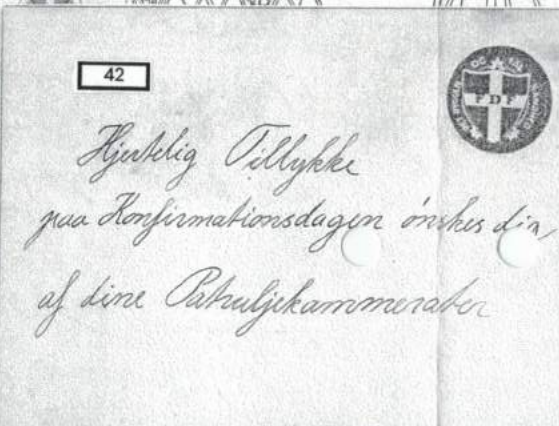 42
FDF
Hjertelig Tillykke
paa Konfirmationsdagen ønskes din
af dine Patruljekammerater